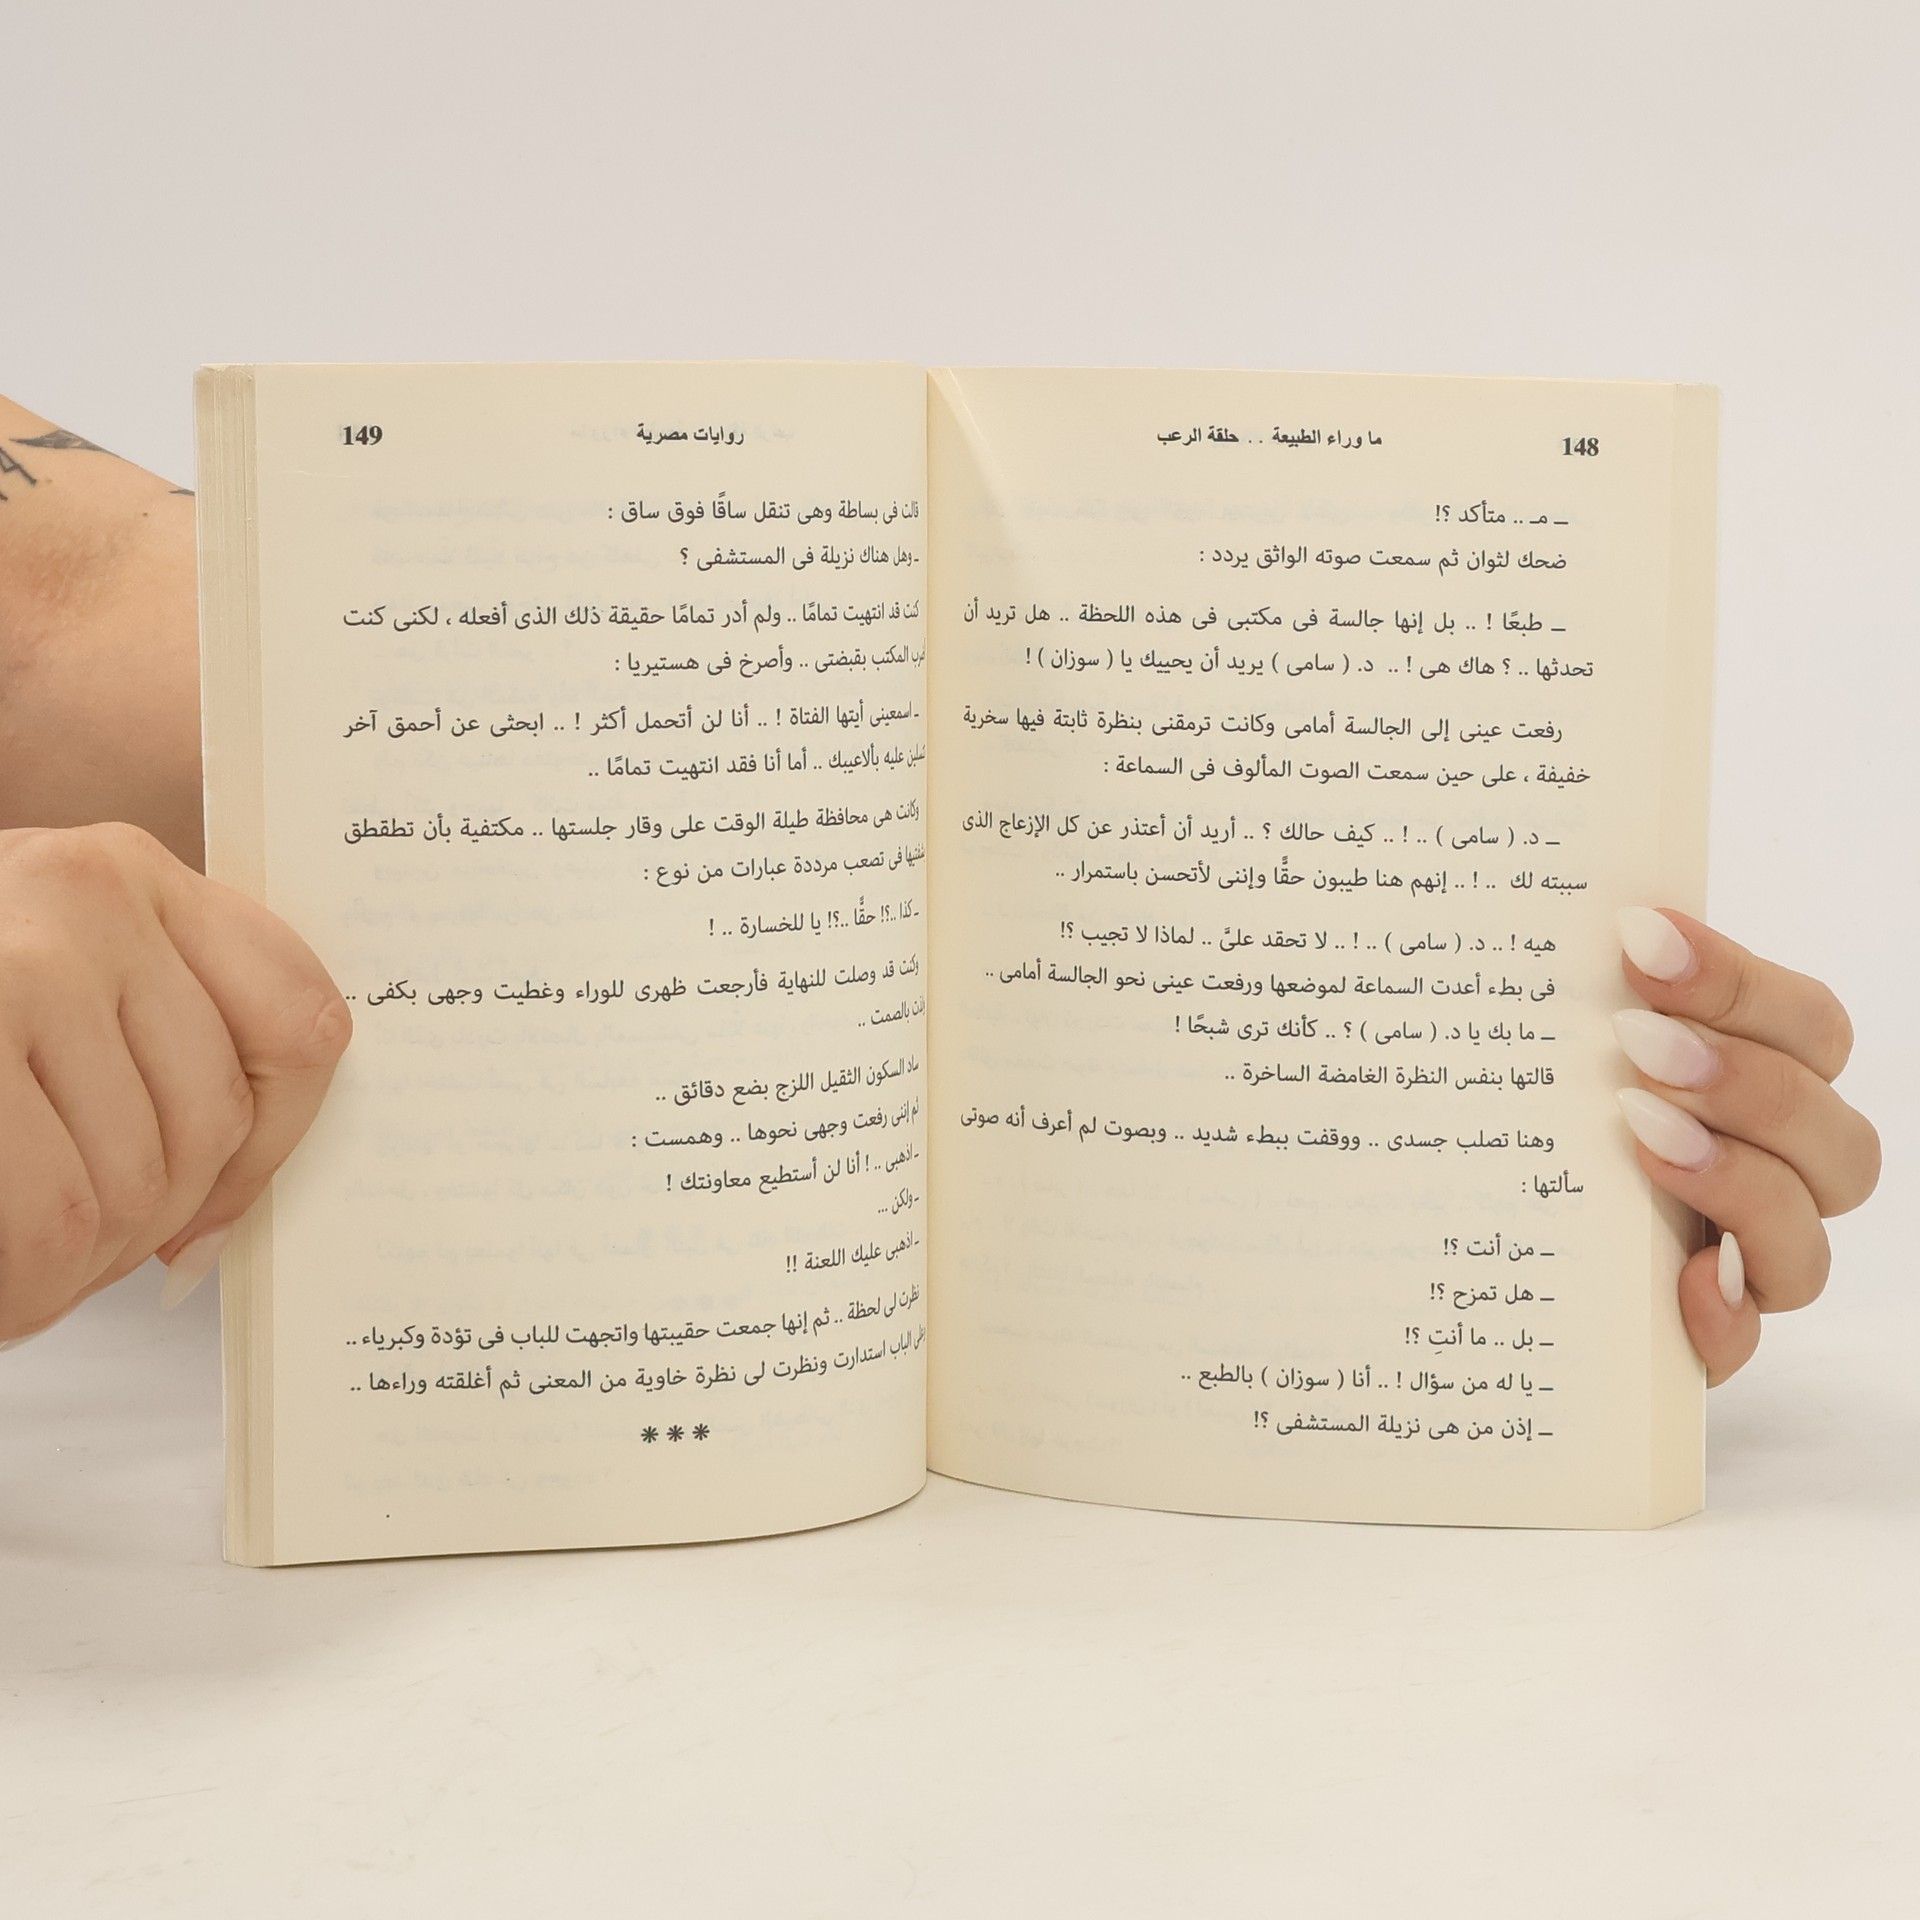 148
ما وراء الطبيعة . . حلقة الرعب
ــ مـ .. متأكد ؟!
ضحك لثوان ثم سمعت صوته الواثق يردد :
ــ طبعًا ! .. بل إنها جالسة فى مكتبى فى هذه اللحظة .. هل تريد أن
تحدثها .. ؟ هاك هى ! .. د. ( سامى ) يريد أن يحييك يا ( سوزان ) !
رفعت عينى إلى الجالسة أمامى وكانت ترمقنى بنظرة ثابتة فيها سخرية
خفيفة ، على حين سمعت الصوت المألوف فى السماعة :
ــ د. ( سامى ) .. ! .. كيف حالك ؟ .. أريد أن أعتذر عن كل الإزعاج الذى
سببته لك .. ! .. إنهم هنا طيبون حقًّا وإننى لأتحسن باستمرار ..
هيه ! .. د. ( سامى ) .. ! .. لا تحقد علىَّ .. لماذا لا تجيب ؟!
فى بطء أعدت السماعة لموضعها ورفعت عينى نحو الجالسة أمامى ..
ــ ما بك يا د. ( سامى ) ؟ .. كأنك ترى شبحًا !
قالتها بنفس النظرة الغامضة الساخرة ..
وهنا تصلب جسدى .. ووقفت ببطء شديد .. وبصوت لم أعرف أنه صوتى
سألتها :
ــ من أنت ؟!
ــ هل تمزح ؟!
ــ بل .. ما أنتِ ؟!
ــ يا له من سؤال ! .. أنا ( سوزان ) بالطبع ..
ــ إذن من هى نزيلة المستشفى ؟!
روايات مصرية
149
قالت فى بساطة وهى تنقل ساقًا فوق ساق :
ـ وهل هناك نزيلة فى المستشفى ؟
كنت قد انتهيت تمامًا .. ولم أدر تمامًا حقيقة ذلك الذى أفعله ، لكنى كنت
المكتب بقبضتى .. وأصرخ فى هستيريا :
ـ اسمعينى أيتها الفتاة ! .. أنا لن أتحمل أكثر ! .. ابحثى عن أحمق آخر
عليه بألاعيبك .. أما أنا فقد انتهيت تمامًا ..
وكانت هى محافظة طيلة الوقت على وقار جلستها .. مكتفية بأن تطقطق
بشفتيها فى تصعب مرددة عبارات من نوع :
ـ كذا ..؟! حقًّا ..؟! يا للخسارة .. !
وكنت قد وصلت للنهاية فأرجعت ظهرى للوراء وغطيت وجهى بكفى ..
بالصمت ..
ساد السكون الثقيل اللزج بضع دقائق ..
ثم إننى رفعت وجهى نحوها .. وهمست :
ـ اذهبى .. ! أنا لن أستطيع معاونتك !
ـ ولكن ...
ـ اذهبى عليك اللعنة !!
نظرت لى لحظة .. ثم إنها جمعت حقيبتها واتجهت للباب فى تؤدة وكبرياء ..
الباب استدارت ونظرت لى نظرة خاوية من المعنى ثم أغلقته وراءها ..
***